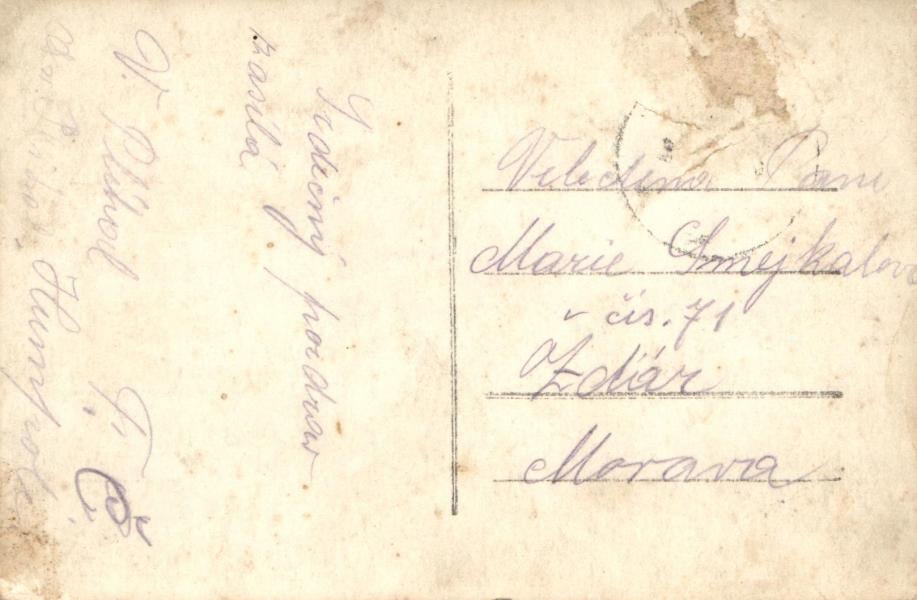 Srdečný pozdrav
zasílá
V. Růhol F. Č.
Humpole
Velectěna Paní
Marie Smejkalova
v čís. 71
Zdár
Morava